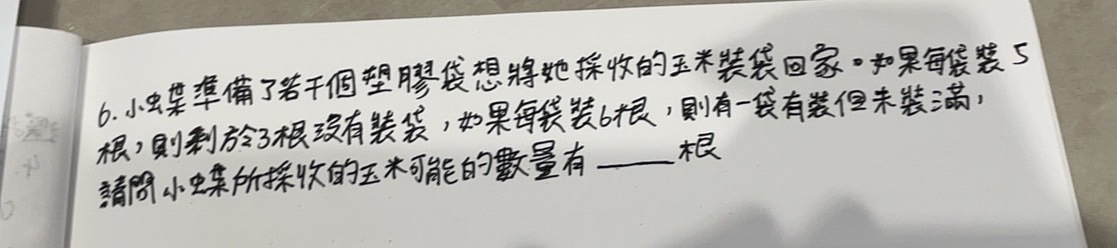 6.小蝶準備了若干個塑膠袋想將她採收的玉米裝袋回家。如果每袋裝5
根,則剩於3根沒有裝袋,如果每袋裝6根,則有一袋有裝但未裝滿,
請問小蝶所採收的玉米可能的數量有____根